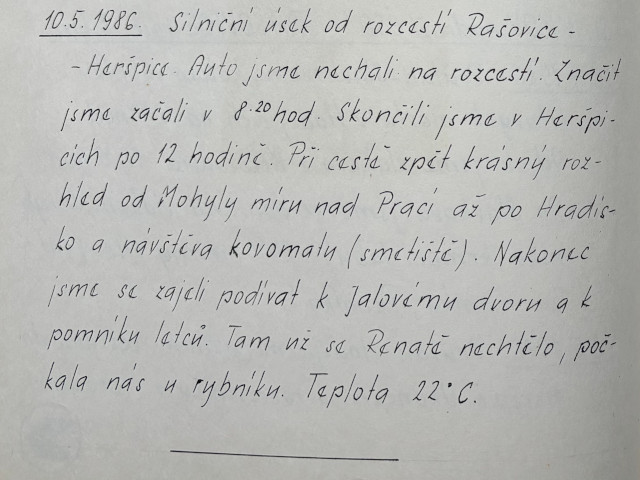 10.5.1986. Silniční úsek od rozcestí Rašovice -
- Heršpice. Auto jsme nechali na rozcestí. Značit
jsme začali v 8.20 hod. Skončili jsme v Heršpi-
cích po 12 hodině. Při cestě zpět krásný roz-
hled od Mohyly míru nad Prací až po Hradis-
ko a návštěva kovomatu (smetiště). Nakonec
jsme se zajeli podívat k Jalovému dvoru a k
pomníku letců. Tam už se Renatě nechtělo, poč-
kala nás u rybníku. Teplota 22°C.